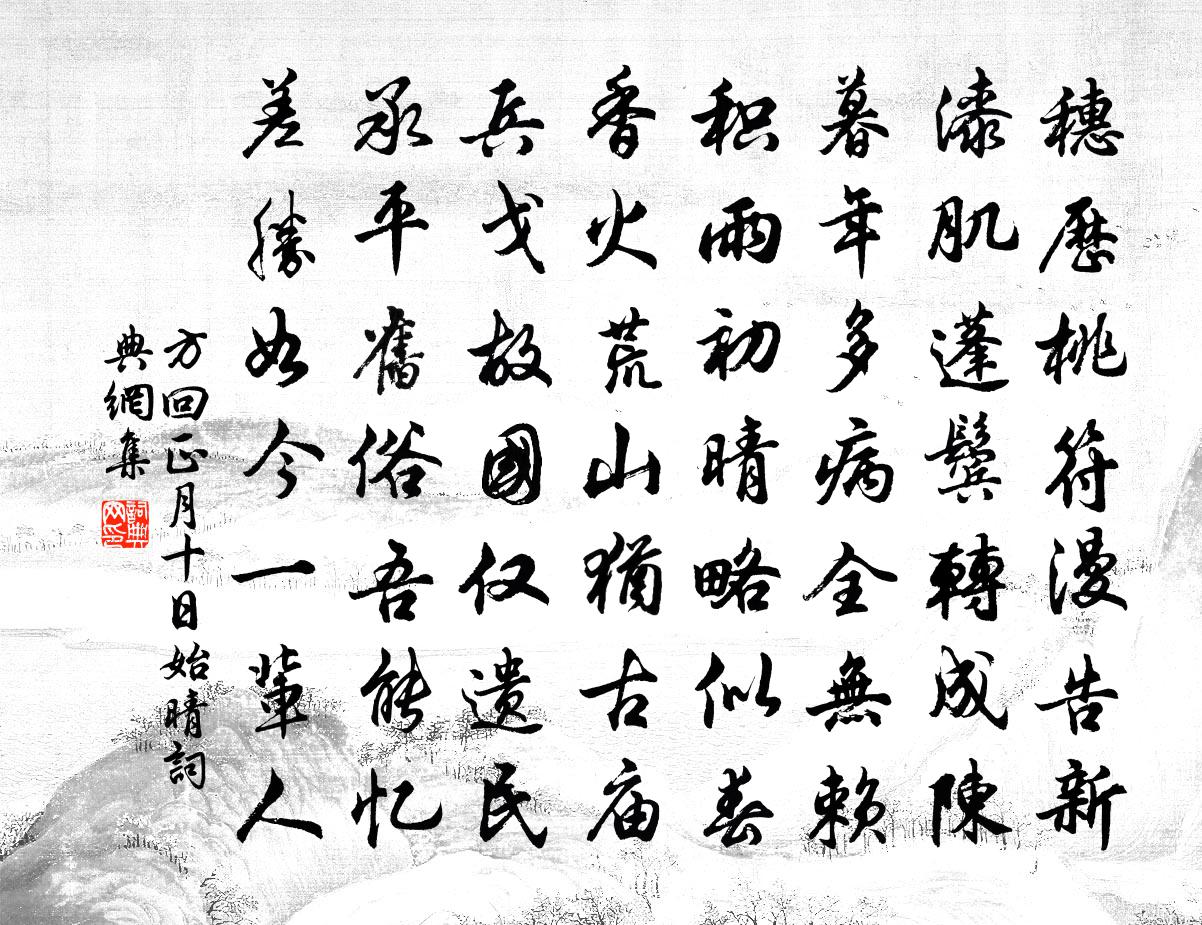 穗歷桃符漫告新
漆肌蓬鬢轉成陳
暮年多病全無賴
积雨初晴略似春
香火荒山猶古庙
兵戈故國仅遗民
承平舊俗吾能忆
差勝如今一輩人
方回正月十日始晴詞
典網集
詞典网印